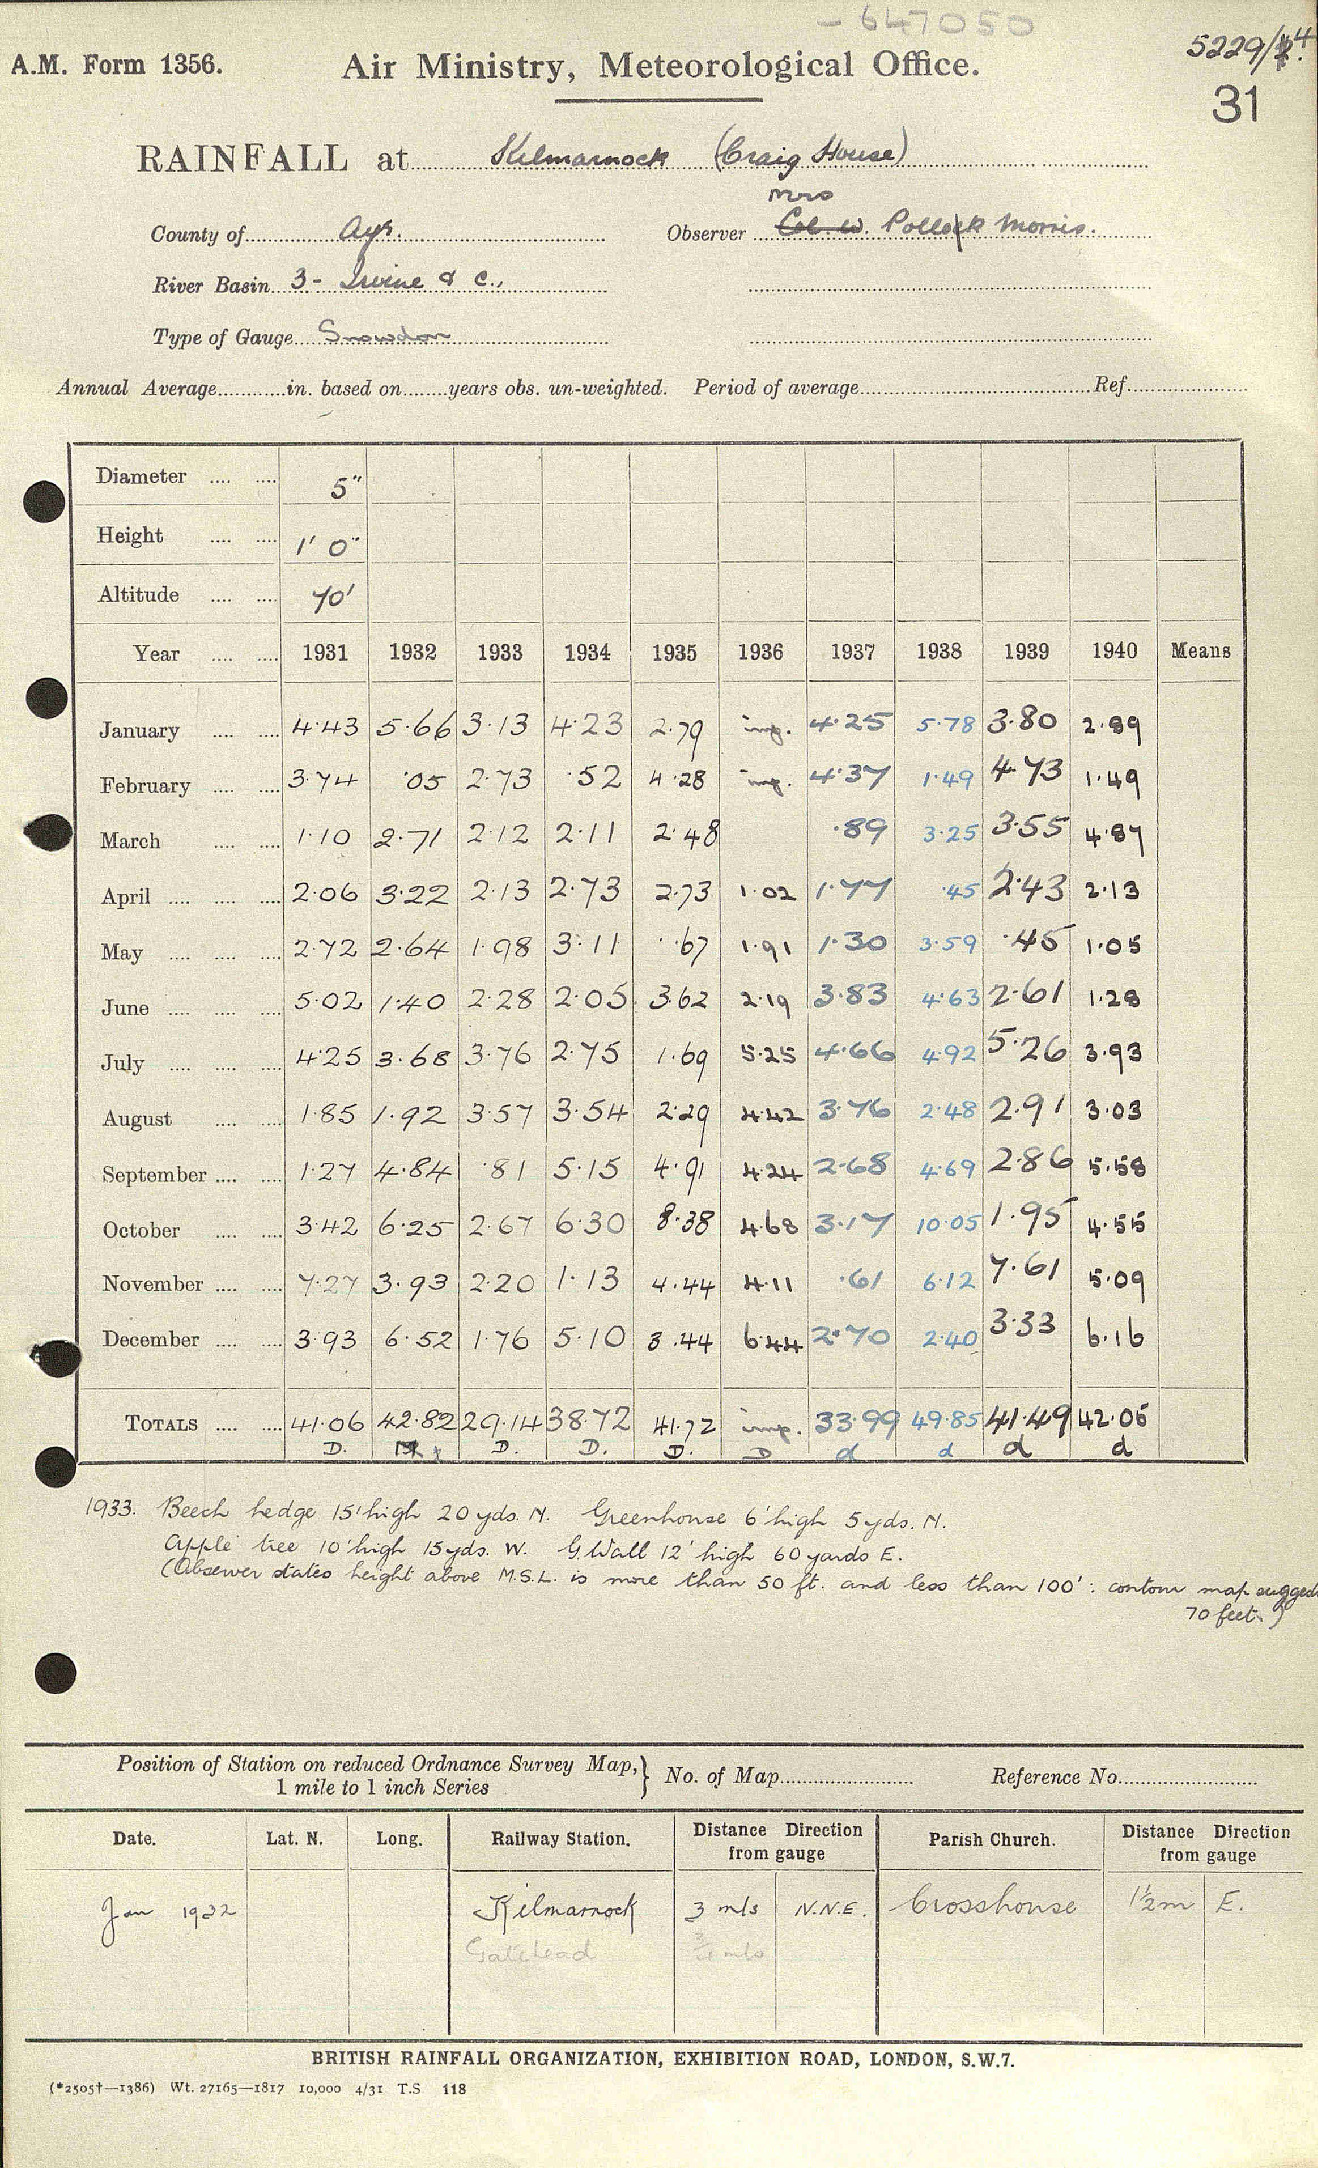 - 647050
5229/14.
A.M. Form 1356.
Air Ministry, Meteorological Office.
31
RAINFALL at Kilmarnock (Craig House)
Mrs
County of Ayr. Observer Col. W. Pollock Morris.
River Basin 3 - Irvine & c.,
Type of Gauge Snowdon
Annual Average in. based on years obs. un-weighted. Period of average Ref
Diameter 5"
Height 1' 0"
Altitude 70'
Year 1931 1932 1933 1934 1935 1936 1937 1938 1939 1940 Means
January 4.43 5.66 3.13 4.23 2.79 imp. 4.25 5.78 3.80 2.89
February 3.74 .05 2.73 .52 4.28 imp. 4.37 1.49 4.73 1.49
March 1.10 2.71 2.12 2.11 2.48 .89 3.25 3.55 4.87
April 2.06 3.22 2.13 2.73 2.73 1.02 1.77 .45 2.43 2.13
May 2.72 2.64 1.98 3.11 .67 1.91 1.30 3.59 .45 1.05
June 5.02 1.40 2.28 2.05 3.62 2.19 3.83 4.63 2.61 1.28
July 4.25 3.68 3.76 2.75 1.69 5.25 4.66 4.92 5.26 3.93
August 1.85 1.92 3.57 3.54 2.29 4.42 3.76 2.48 2.91 3.03
September 1.27 4.84 .81 5.15 4.91 4.24 2.68 4.69 2.86 5.58
October 3.42 6.25 2.67 6.30 8.38 4.68 3.17 10.05 1.95 4.55
November 7.27 3.93 2.20 1.13 4.44 4.11 .61 6.12 7.61 5.09
December 3.93 6.52 1.76 5.10 3.44 6.44 2.70 2.40 3.33 6.16
TOTALS 41.06 42.82 29.14 38.72 41.72 imp. 33.99 49.85 41.49 42.05
D. D. D. D. D d d d d
1933. Beech hedge 15' high 20 yds. N. Greenhouse 6' high 5 yds. N.
Apple tree 10' high 15 yds. W. G. Wall 12' high 60 yards E.
(Observer states height above M.S.L. is more than 50 ft. and less than 100': contour map suggests
70 feet.)
Position of Station on reduced Ordnance Survey Map, 1 mile to 1 inch Series } No. of Map Reference No.
Date. Lat. N. Long. Railway Station. Distance Direction from gauge Parish Church. Distance Direction from gauge
Jan 1932 Kilmarnock 3 mls N.N.E. Crosshouse 1½m E.
Gatehead ¾ mls
BRITISH RAINFALL ORGANIZATION, EXHIBITION ROAD, LONDON, S.W.7.
(*2505†—1386) Wt. 27165—1817 10,000 4/31 T.S 118